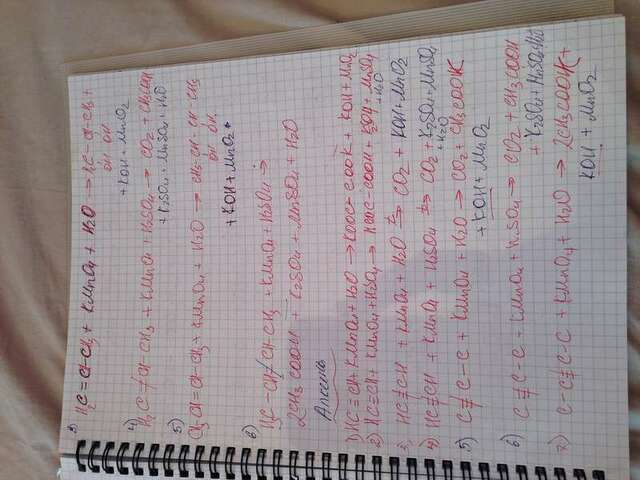 3) H₂C=CH-CH₃ + KMnO₄ + H₂O → H₂C-CH-CH₃ +
OH OH
+ KOH + MnO₂
4) H₂C≠CH-CH₃ + KMnO₄ + H₂SO₄ → CO₂ + CH₃COOH
+ K₂SO₄ + MnSO₄ + H₂O
5) CH₃-CH=CH-CH₃ + KMnO₄ + H₂O → CH₃-CH-CH-CH₃
OH OH
+ KOH + MnO₂
6) H₃C-CH≠CH-CH₃ + KMnO₄ + H₂SO₄ →
2CH₃COOH + K₂SO₄ + MnSO₄ + H₂O
Алкины
1) HC≡CH + KMnO₄ + H₂O → KOOC-COOK + KOH + MnO₂
2) HC≡CH + KMnO₄ + H₂SO₄ → HOOC-COOH + K₂SO₄ + MnSO₄
+ H₂O
3) HC≢CH + KMnO₄ + H₂O → CO₂ + KOH + MnO₂
4) HC≢CH + KMnO₄ + H₂SO₄ → CO₂ + K₂SO₄ + MnSO₄
+ H₂O
5) C≢C-C + KMnO₄ + H₂O → CO₂ + CH₃COOK
+ KOH + MnO₂
6) C≢C-C + KMnO₄ + H₂SO₄ → CO₂ + CH₃COOH
+ K₂SO₄ + MnSO₄ + H₂O
7) C-C≢C-C + KMnO₄ + H₂O → 2CH₃COOK +
KOH + MnO₂